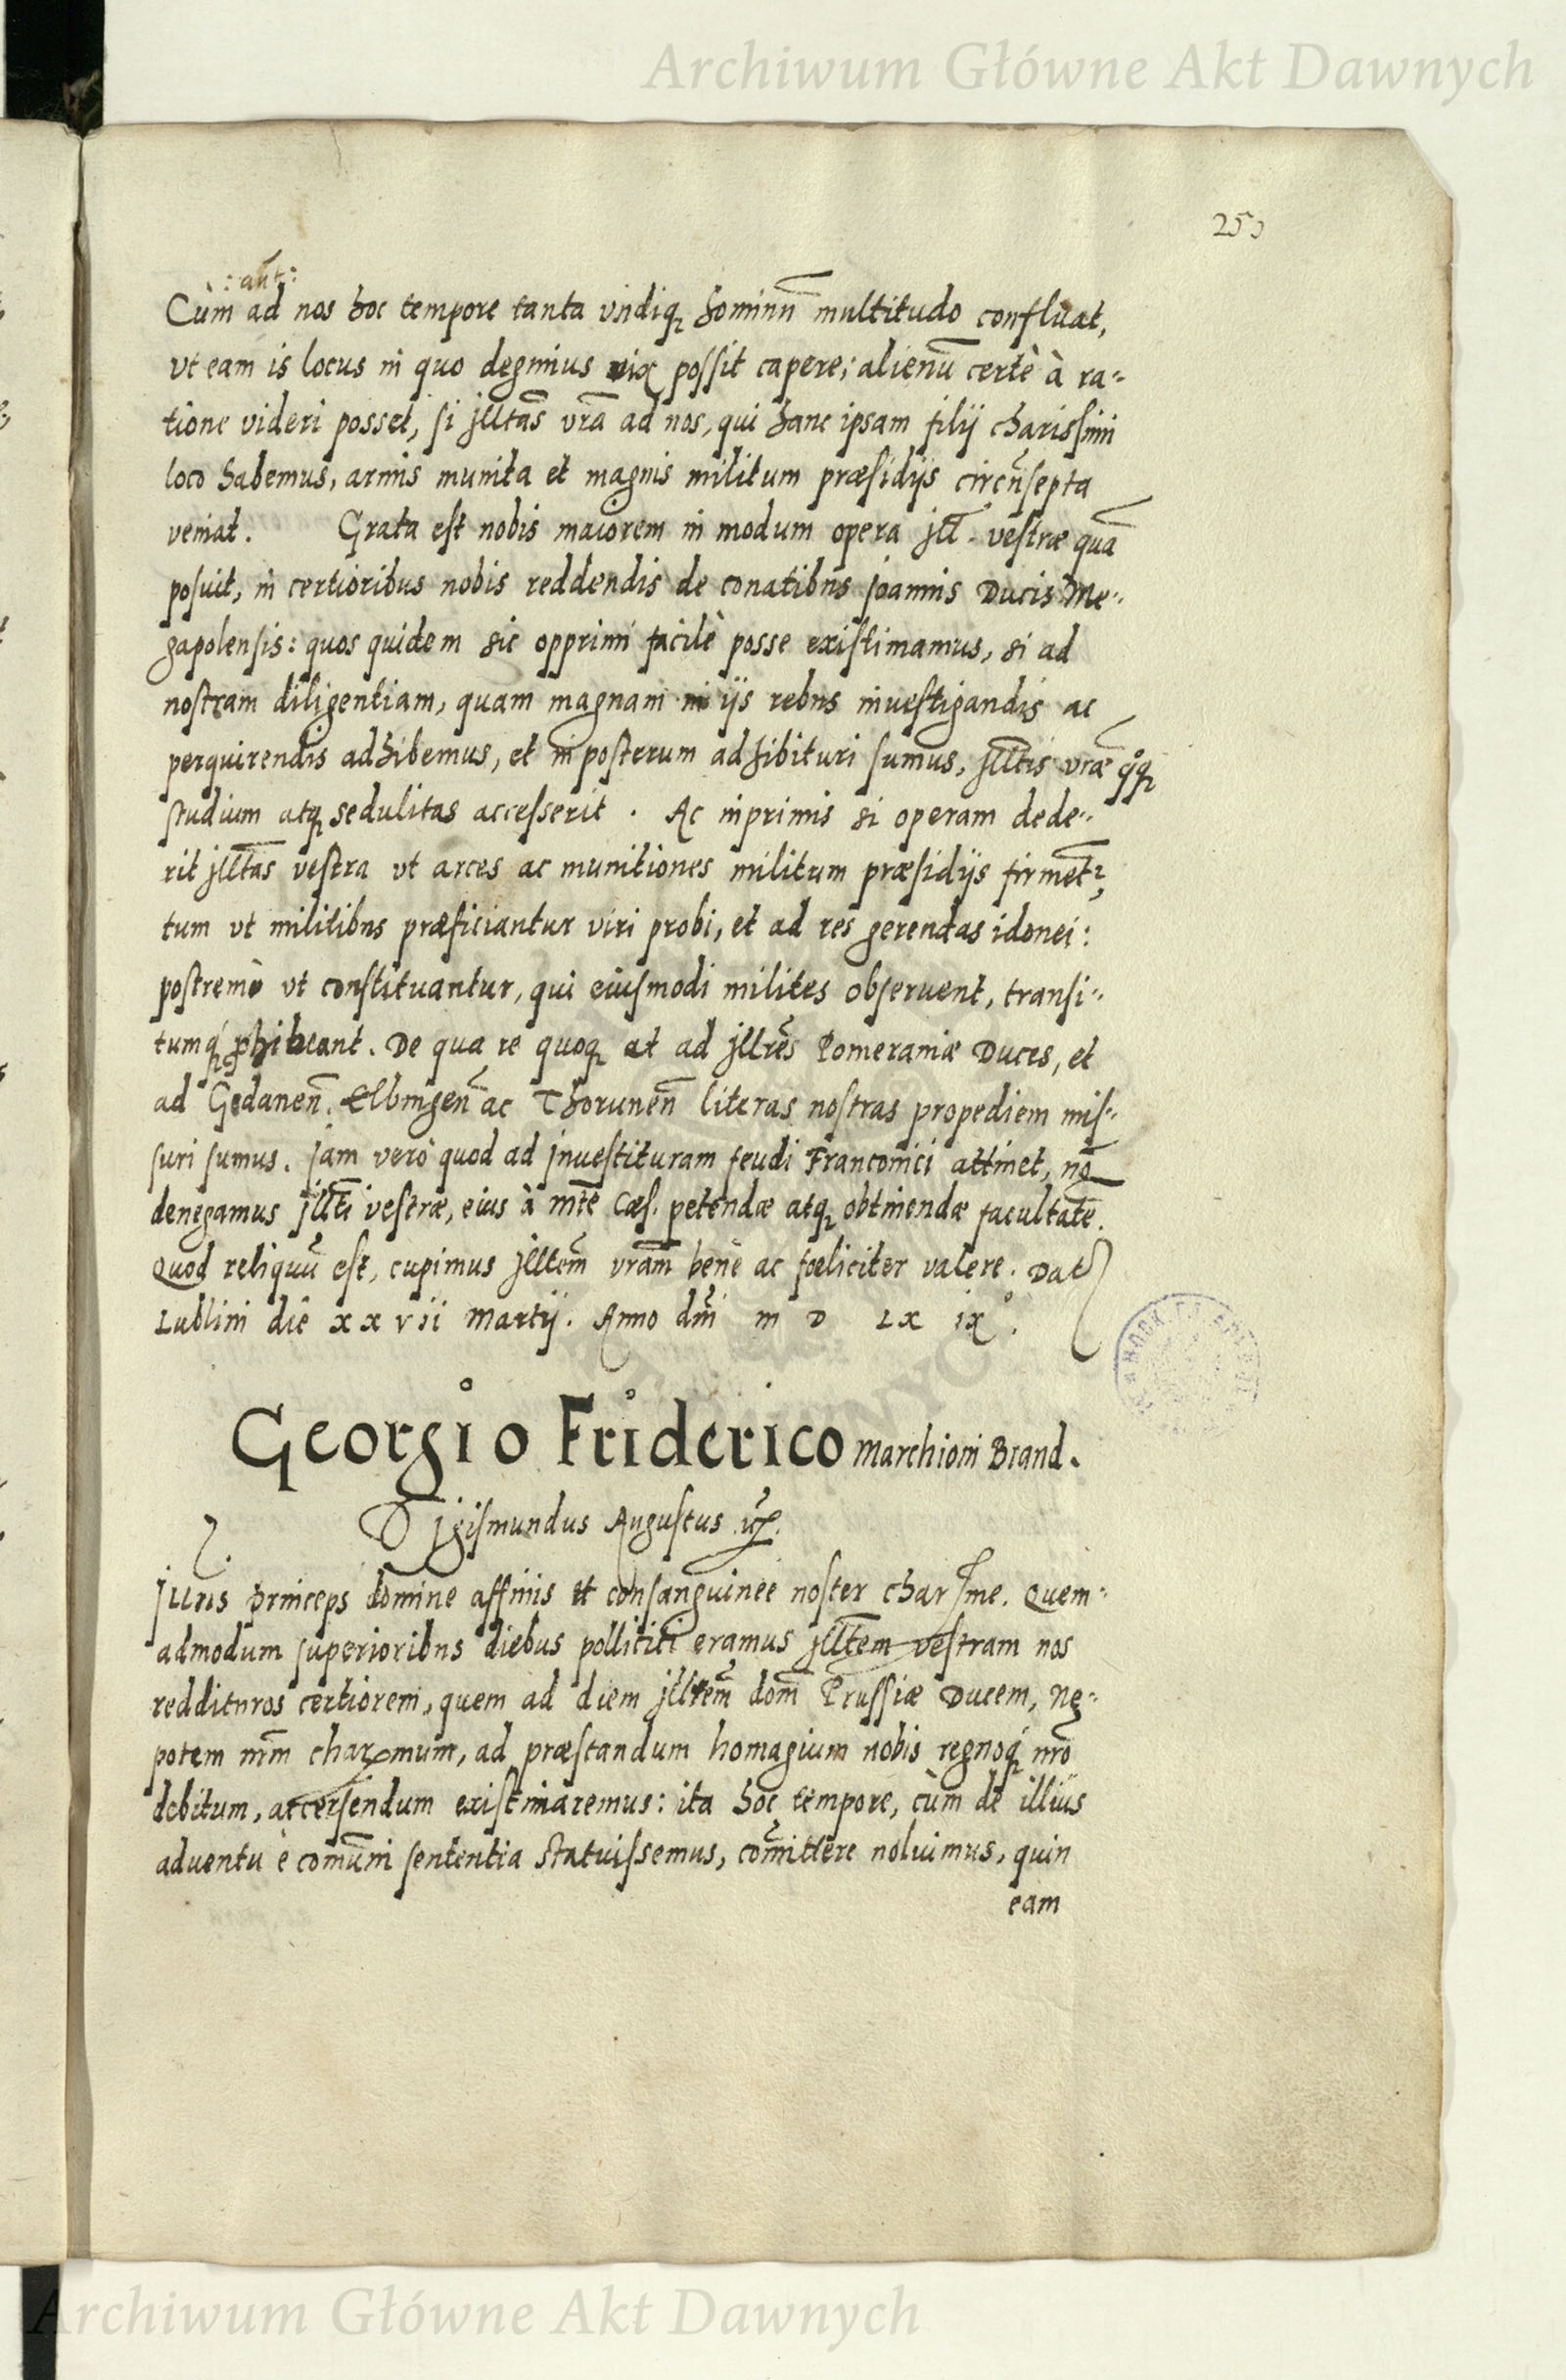 Archiwum Główne Akt Dawnych
:aut:
Cùm ad nos hoc tempore tanta vndiq; hominũ multitudo confluat,
vt eam is locus in quo degimus vix possit capere; alienũ certè à ra-
tione videri posset, si jlltãs vrã ad nos, qui hanc ipsam filij charissimi
loco habemus, armis munita et magnis militum præsidijs circũsepta
veniat. Grata est nobis maiorem in modum opera jll. vestræ quã
posuit, in certioribus nobis reddendis de conatibus joannis Ducis Me-
gapolensis: quos quidem sic opprimi facilè posse existimamus, si ad
nostram diligentiam, quam magnam in ijs rebus inuestigandis ac
perquirendis adhibemus, et in posterum adhibituri sumus, jlltis vræ q̊q;
studium atq; sedulitas accesserit. Ac inprimis si operam dede-
rit jlltãs vestra vt arces ac munitiones militum præsidijs firment²,
tum vt militibus præficiantur viri probi, et ad res gerendas idonei:
postremò vt constituantur, qui eiusmodi milites obseruent, transi-
tumq; phibeant. De qua re quoq; et ad jllrẽs Pomeraniæ Duces, et
ad Gedanen̄. Elbingen̄ ac Thorunen̄ literas nostras propediem mis-
suri sumus. jam verò quod ad jnuestituram feudi Franconici attinet, nõ
denegamus jlltĩ vestræ, eius à mtẽ Cæs. petendæ atq; obtinendæ facultatẽ.
Quod reliquũ est, cupimus jlltem̃ vram̃ bene ac fœliciter valere. Dat
Lublini die xxvii Martij. Anno dm̃i m D Lx ix°.
Georgio Friderico Marchioni Brand.
Sigismundus Augustus
jllris princeps domine affinis et consanguinee noster charsme. Quem-
admodum superioribus diebus polliciti eramus jlltem vestram nos
reddituros certiorem, quem ad diem jllrem̃ dom̃ Prussiæ Ducem, Ne-
potem nrm̃ charmum, ad præstandum homagium nobis regnoq; nrõ
debitum, accersendum existimaremus: ita hoc tempore, cùm de illius
aduentu è comũni sententia statuissemus, com̃ittere noluimus, quin
eam
Archiwum Główne Akt Dawnych